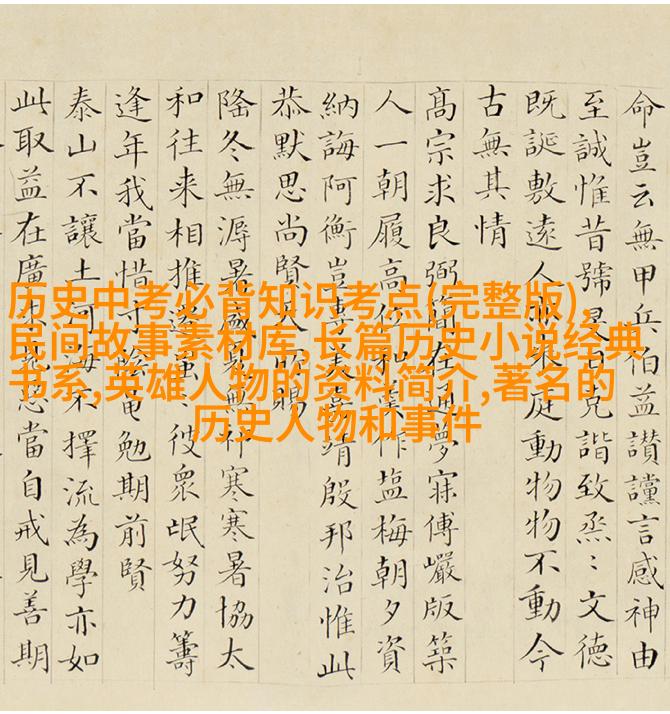 命豈云無甲兵伯益讃讜言感神由
至誠惟昔號克諧致烝〻文德
既誕敷遠人來庭動物物不動今
古無其情
高宗求良弼簡在通夢寐傅嚴版築
人一朝履高位和羹作塩梅朝夕資
納誨阿衡豈專美嘉靖殷邦治惟此
恭默思尚賢人所賜
隆冬無溽暑盛暑無祁寒寒暑協太
和往来相推遷蚩〻彼衆氓努力籌
逢年我當惜寸陰黽勉期前賢
泰山不讓土河海不擇流為學亦如
此取益在廣當自戒見善期
历史中考必背知识考点(完整版),
民间故事素材库,长篇历史小说经典
书系,英雄人物的资料简介,著名的
历史人物和事件